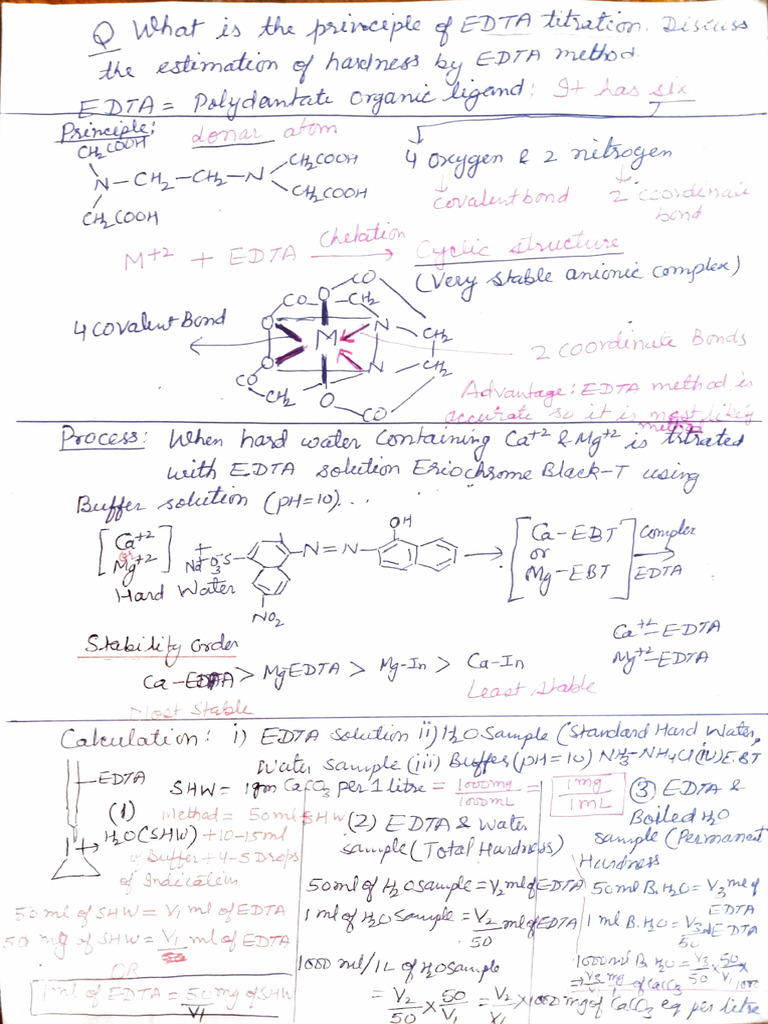 Q What is the principle of EDTA titration. Discuss
the estimation of hardness by EDTA method.
EDTA = Polydantate organic ligand: It has six
Principle: donar atom
4 oxygen & 2 nitrogen
CH2COOH
CH2COOH
N-CH2-CH2-N
CH2COOH
CH2COOH
covalent bond
2 coordinate
bond
M+2 + EDTA Chelation Cyclic structure
(Very stable anionic complex)
CO
O
CO
CH2
4 Covalent Bond
O
N
CH2
M
2 coordinate Bonds
O
N
CH2
CO
CH2
O
CO
Advantage: EDTA method is
accurate so it is most likely
method
Process: When hard water containing Ca+2 & Mg+2 is titrated
with EDTA solution Eriochrome Black-T using
Buffer solution (pH=10)...
OH
[Ca+2 or Mg+2] + Na+O3-S N=N
[Ca-EBT or Mg-EBT] Complex EDTA
Hard Water
NO2
Ca+2-EDTA
Mg+2-EDTA
Stability order
Ca-EDTA > MgEDTA > Mg-In > Ca-In
Most Stable
Least Stable
Calculation: i) EDTA solution ii) H2O Sample (Standard Hard Water,
Water sample (iii) Buffer (pH=10) NH3-NH4Cl (iv) E.BT
EDTA
SHW = 1gm CaCO3 per 1 litre = 1000mg/1000mL = 1mg/1mL
(1)
Method = 50ml SHW
H2O(SHW) +10-15ml
Buffer + 4-5 Drops
of Indicator
50 ml of SHW = V1 ml of EDTA
50 mg of SHW = V1 ml of EDTA
OR
1 ml of EDTA = 50/V1 mg of SHW
(2) EDTA & Water
sample (Total Hardness)
50ml of H2O sample = V2 ml of EDTA
1 ml of H2O Sample = V2/50 ml of EDTA
1000 ml/1L of H2O sample
= V2/50 × 50/V1 = V2/V1 × 1000 mg of CaCO3 eq per litre
③ EDTA &
Boiled H2O
sample (Permanent
Hardness
50ml B.H2O = V3 ml of
EDTA
1 ml B.H2O = V3/50 of EDTA
1000ml B.H2O = V3/50 × 50/V1 × 1000
⇒ V3/V1 mg of CaCO3